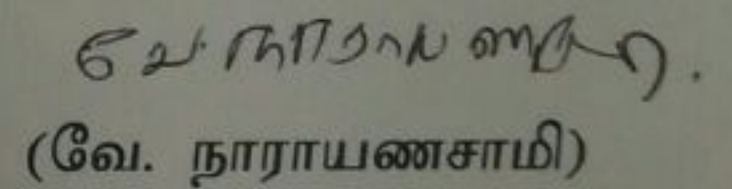 வே. நாராயணசாமி.
(வே. நாராயணசாமி)